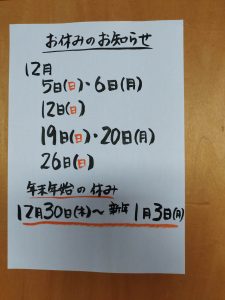 お休みのお知らせ
12月
5日(日)・6日(月)
12日(日)
19日(日)・20日(月)
26日(日)
年末年始の休み
12月30日(木)〜新年1月3日(月)